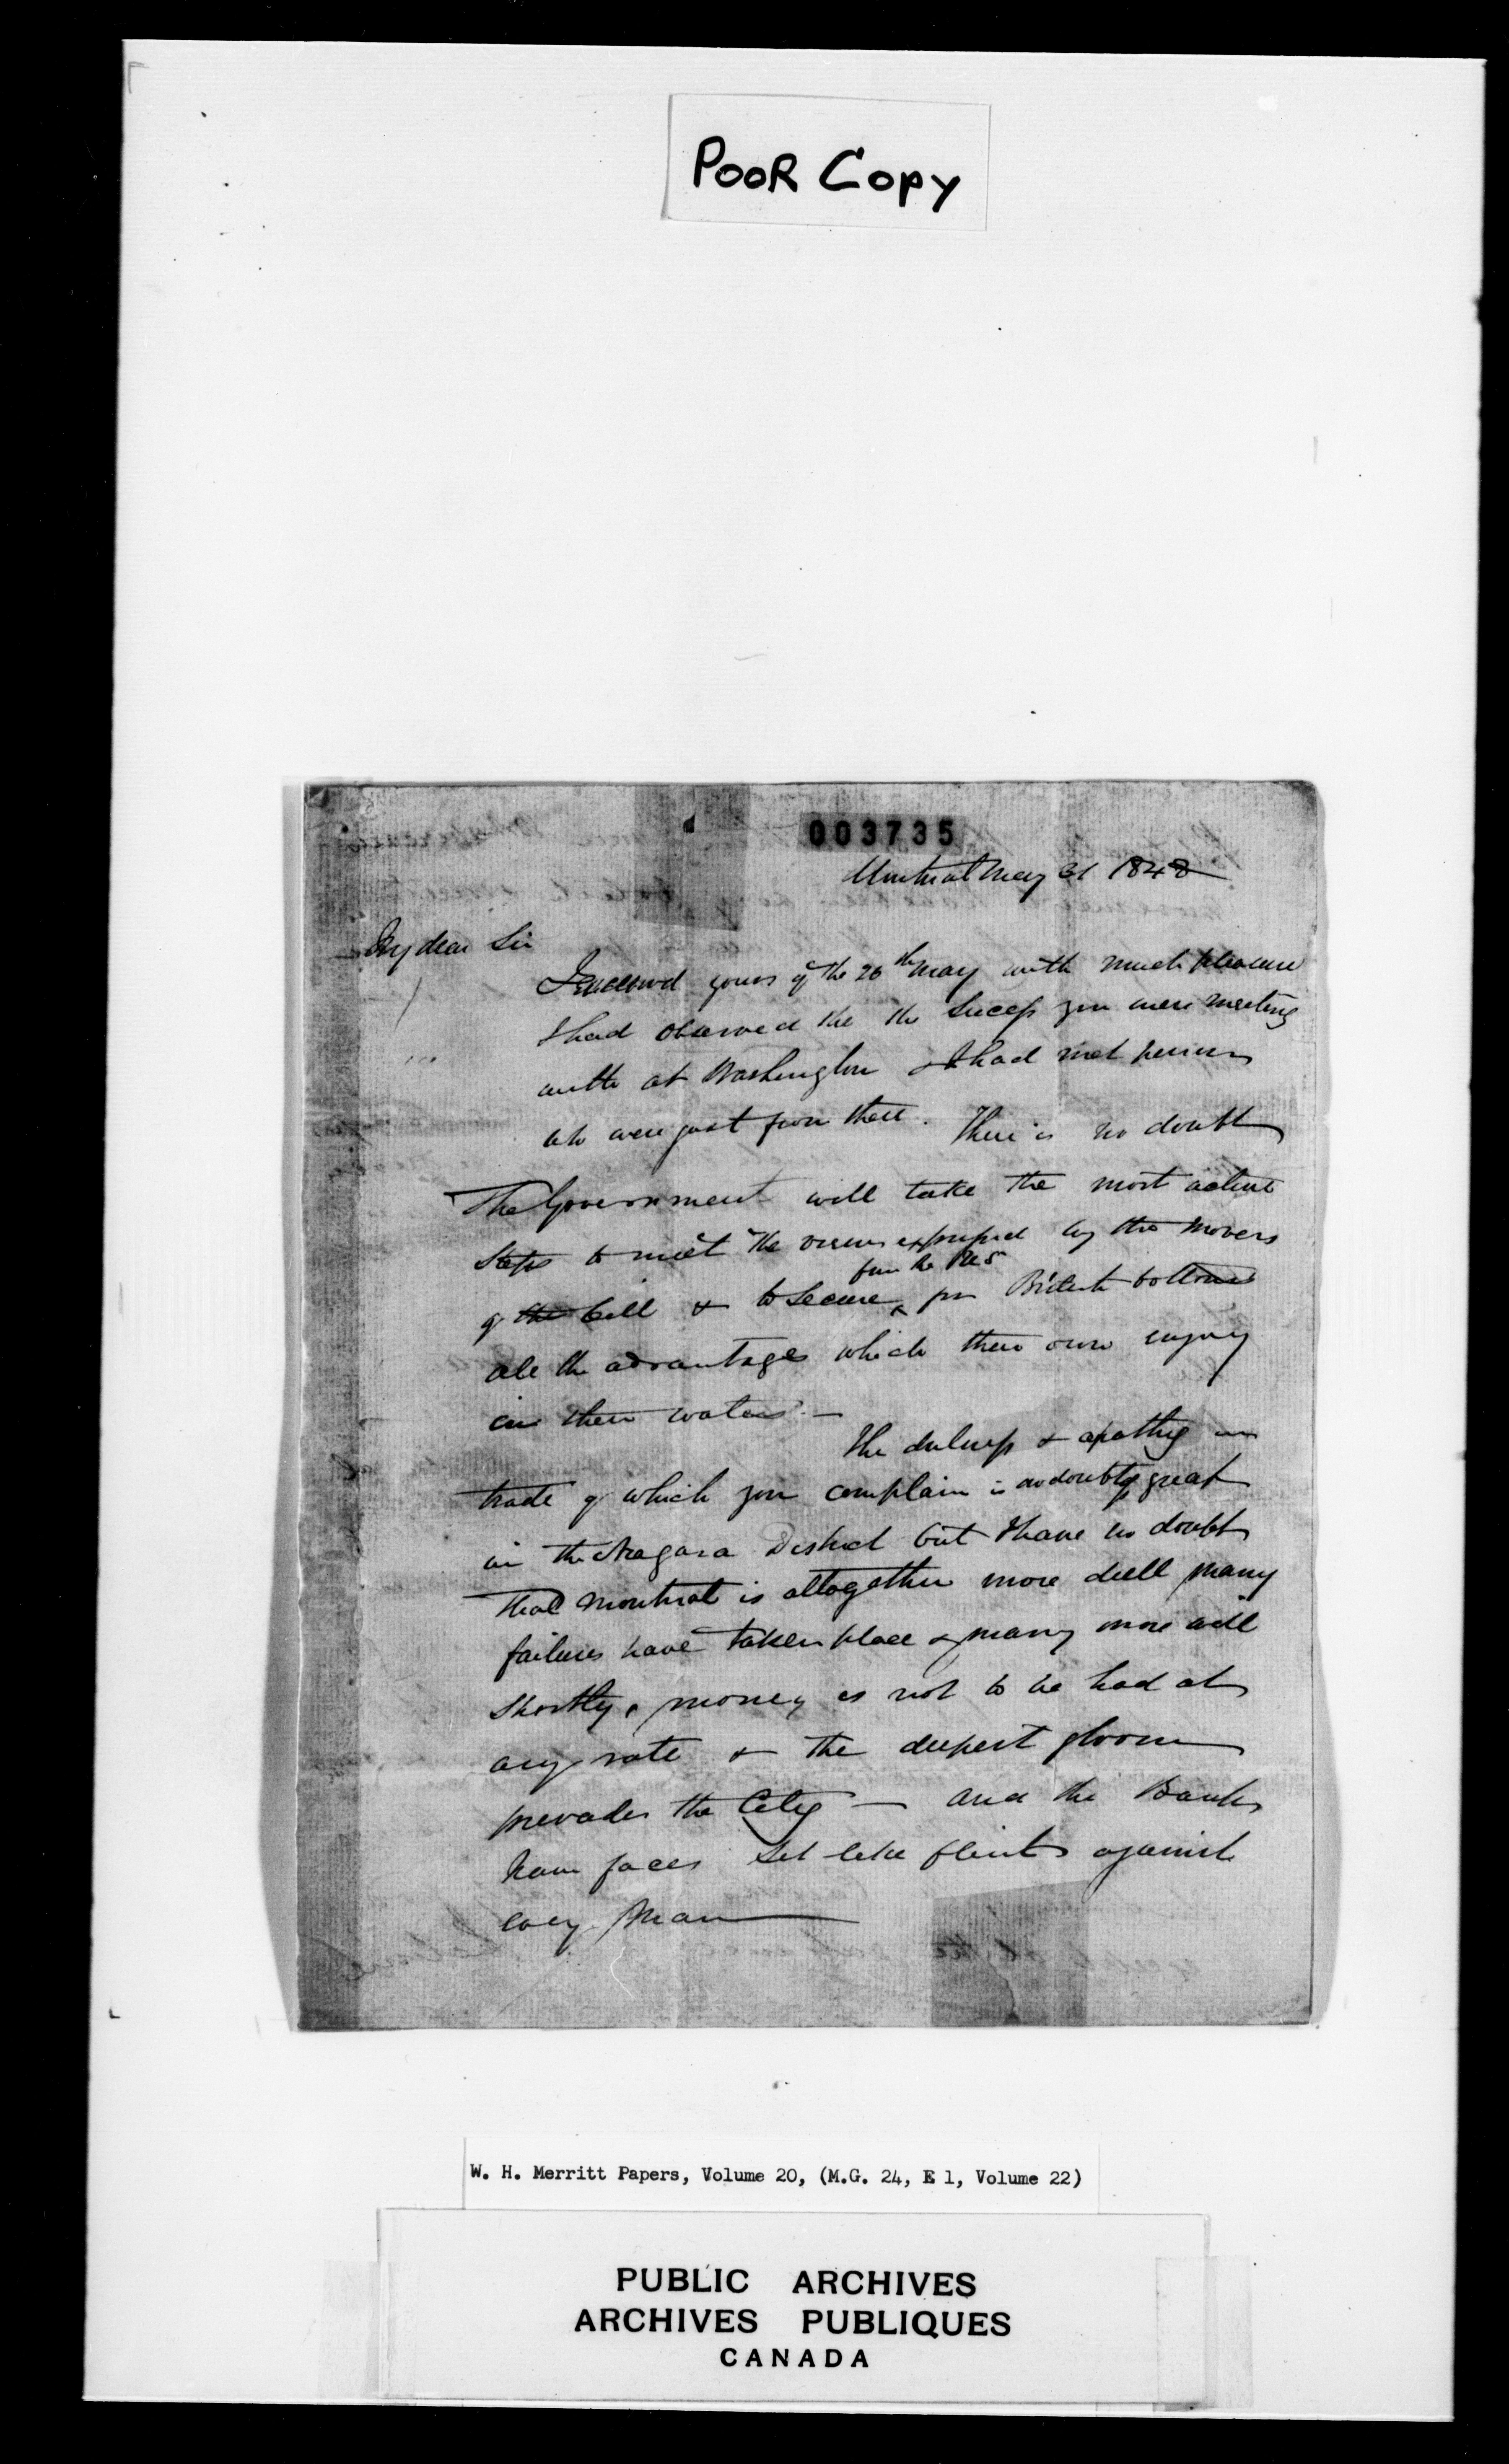 POOR COPY
003735
Montreal May 31 1848
My dear Sir
I received yours of the 26th May with much pleasure
I had observed the the success you were meeting
with at Washington & I had met persons
who were just from there. There is no doubt
The Government will take the most active
steps to meet the views expressed by the movers
of the bill & to secure from the US for British bottoms
all the advantages which their own enjoy
in their waters –
The dulness & apathy in
trade of which you complain is no doubt great
in the Niagara District but I have no doubt
that Montreal is altogether more dull many
failures have taken place & many more will
shortly, money is not to be had at
any rate & the deepest gloom
prevades the City – and the Banks
have faces set like flints against
every man
W. H. Merritt Papers, Volume 20, (M.G. 24, E 1, Volume 22)
PUBLIC ARCHIVES
ARCHIVES PUBLIQUES
CANADA